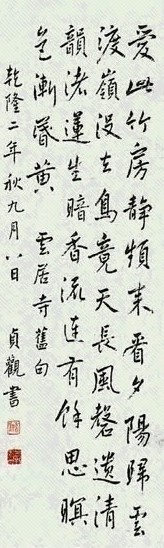 愛此竹房靜頻来看夕陽歸雲
渡嶺没去鳥竟天長風磬遺清
韻渚蓮生暗香流連有餘思暝
色漸昏黄 雲居寺舊句
乾隆二年秋九月八日
貞觀書